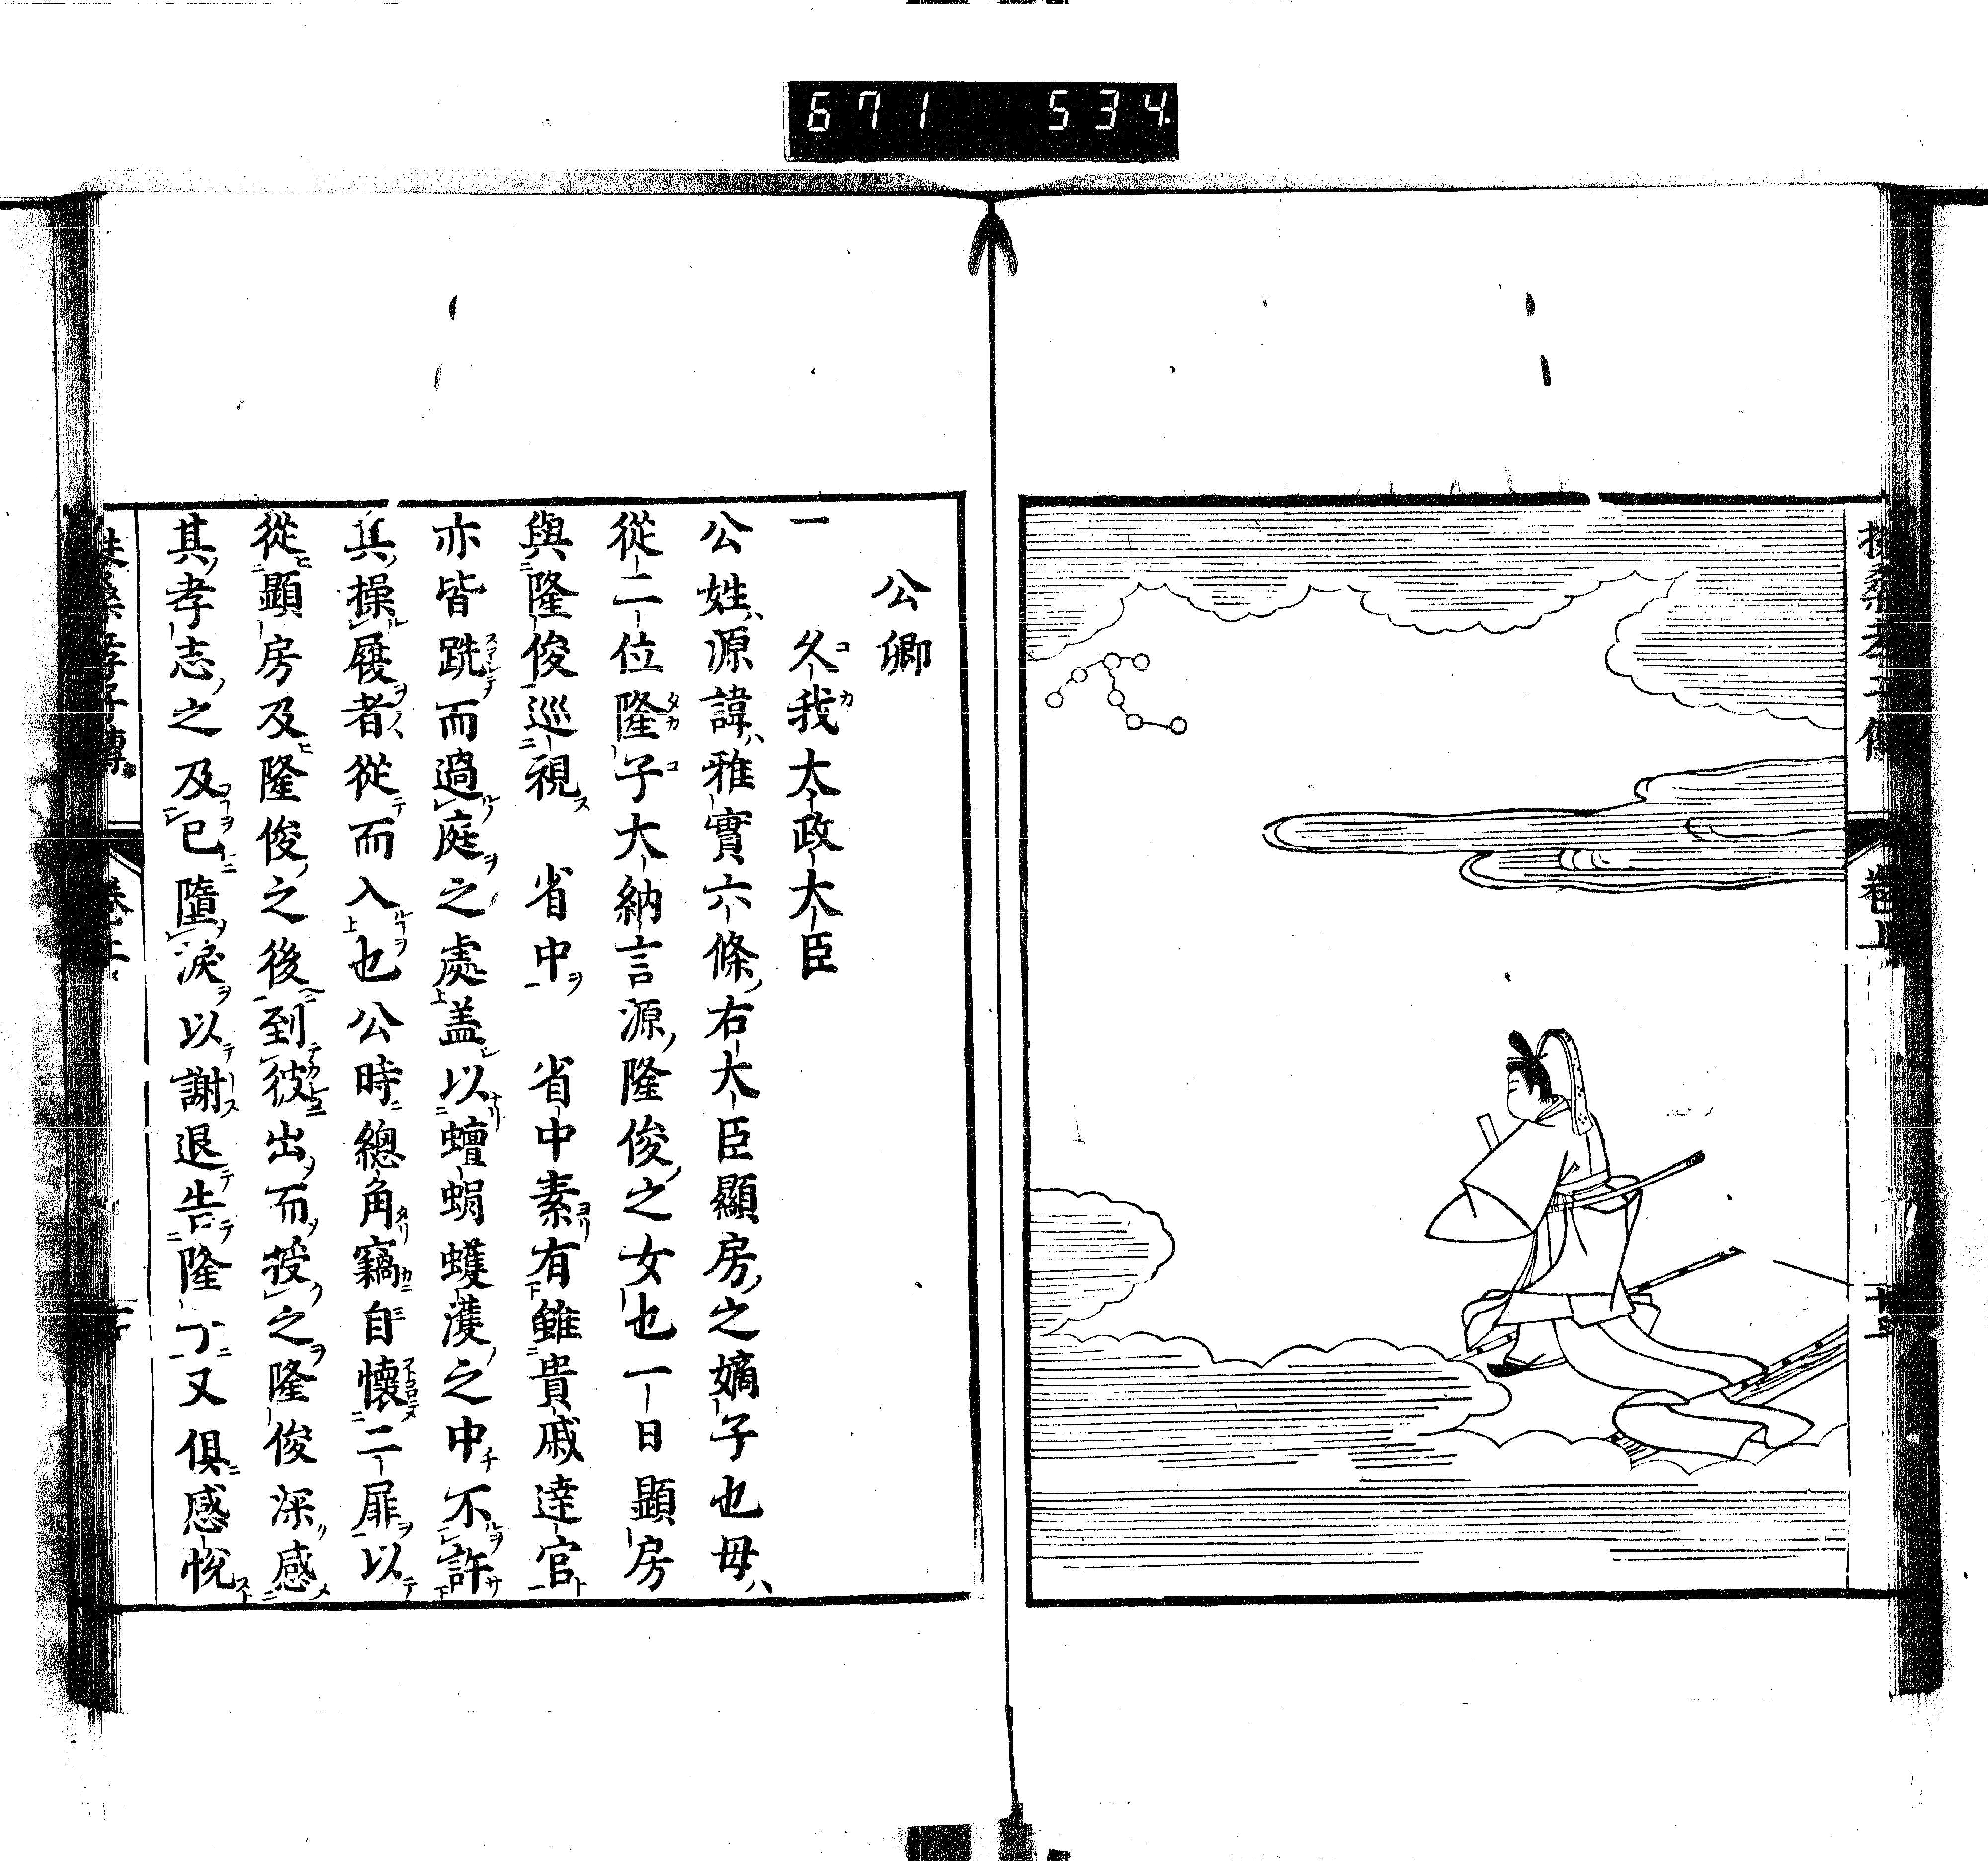 671 534
扶桑孝子傳 卷上 十四
公卿
一 久我太政大臣
公姓源諱雅實六條右大臣顯房之嫡子也母
從二位隆子大納言源隆俊之女也一日顯房
與隆俊巡視 省中 省中素有雖貴戚達官
亦皆跣而過庭之處盖以蟺蜎蠖濩之中不許
其操履者從而入也公時總角竊自懷二扉以
從顯房及隆俊之後到彼出而授之隆俊深感
其孝志之及已墮淚以謝退告隆子又俱感悅
扶桑孝子傳 卷上